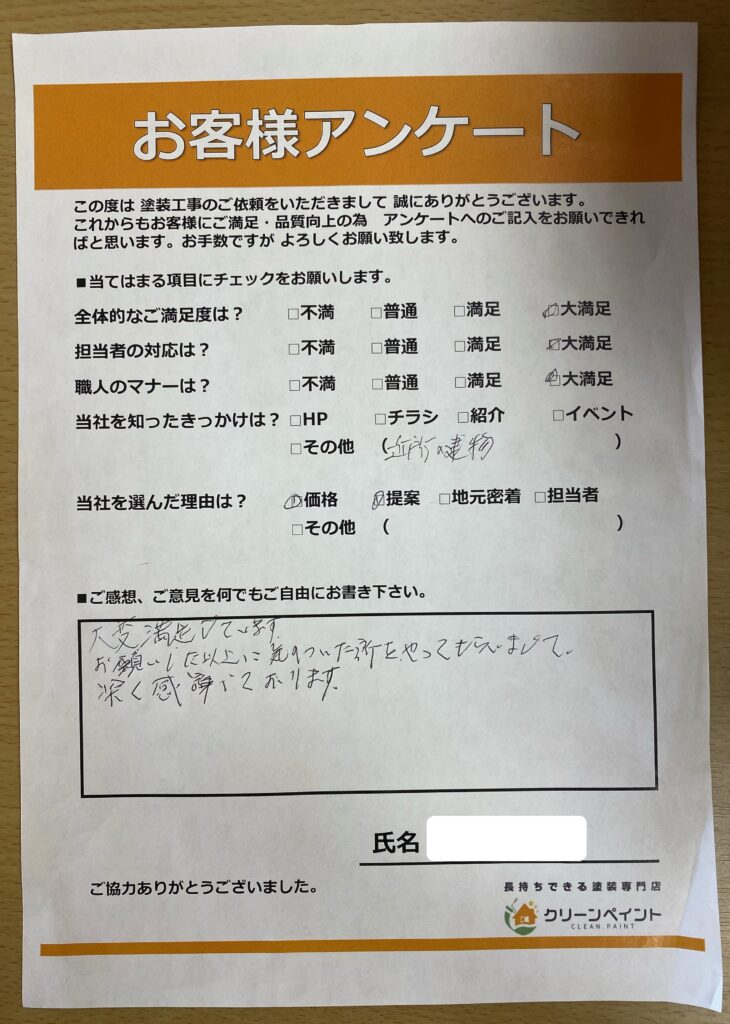 お客様アンケート
この度は 塗装工事のご依頼をいただきまして 誠にありがとうございます。
これからもお客様にご満足・品質向上の為　アンケートへのご記入をお願いできれ
ばと思います。お手数ですが よろしくお願い致します。
■当てはまる項目にチェックをお願いします。
全体的なご満足度は？ □不満 □普通 □満足 ☑大満足
担当者の対応は？ □不満 □普通 □満足 ☑大満足
職人のマナーは？ □不満 □普通 □満足 ☑大満足
当社を知ったきっかけは？ □HP □チラシ □紹介 □イベント
□その他 （近所の建物）
当社を選んだ理由は？ ☑価格 ☑提案 □地元密着 □担当者
□その他 （ ）
■ご感想、ご意見を何でもご自由にお書き下さい。
大変満足しています。
お願いした以上に気のついた所をやってもらいまして、
深く感謝しております。
氏名
ご協力ありがとうございました。
長持ちできる塗装専門店
クリーンペイント
CLEAN PAINT